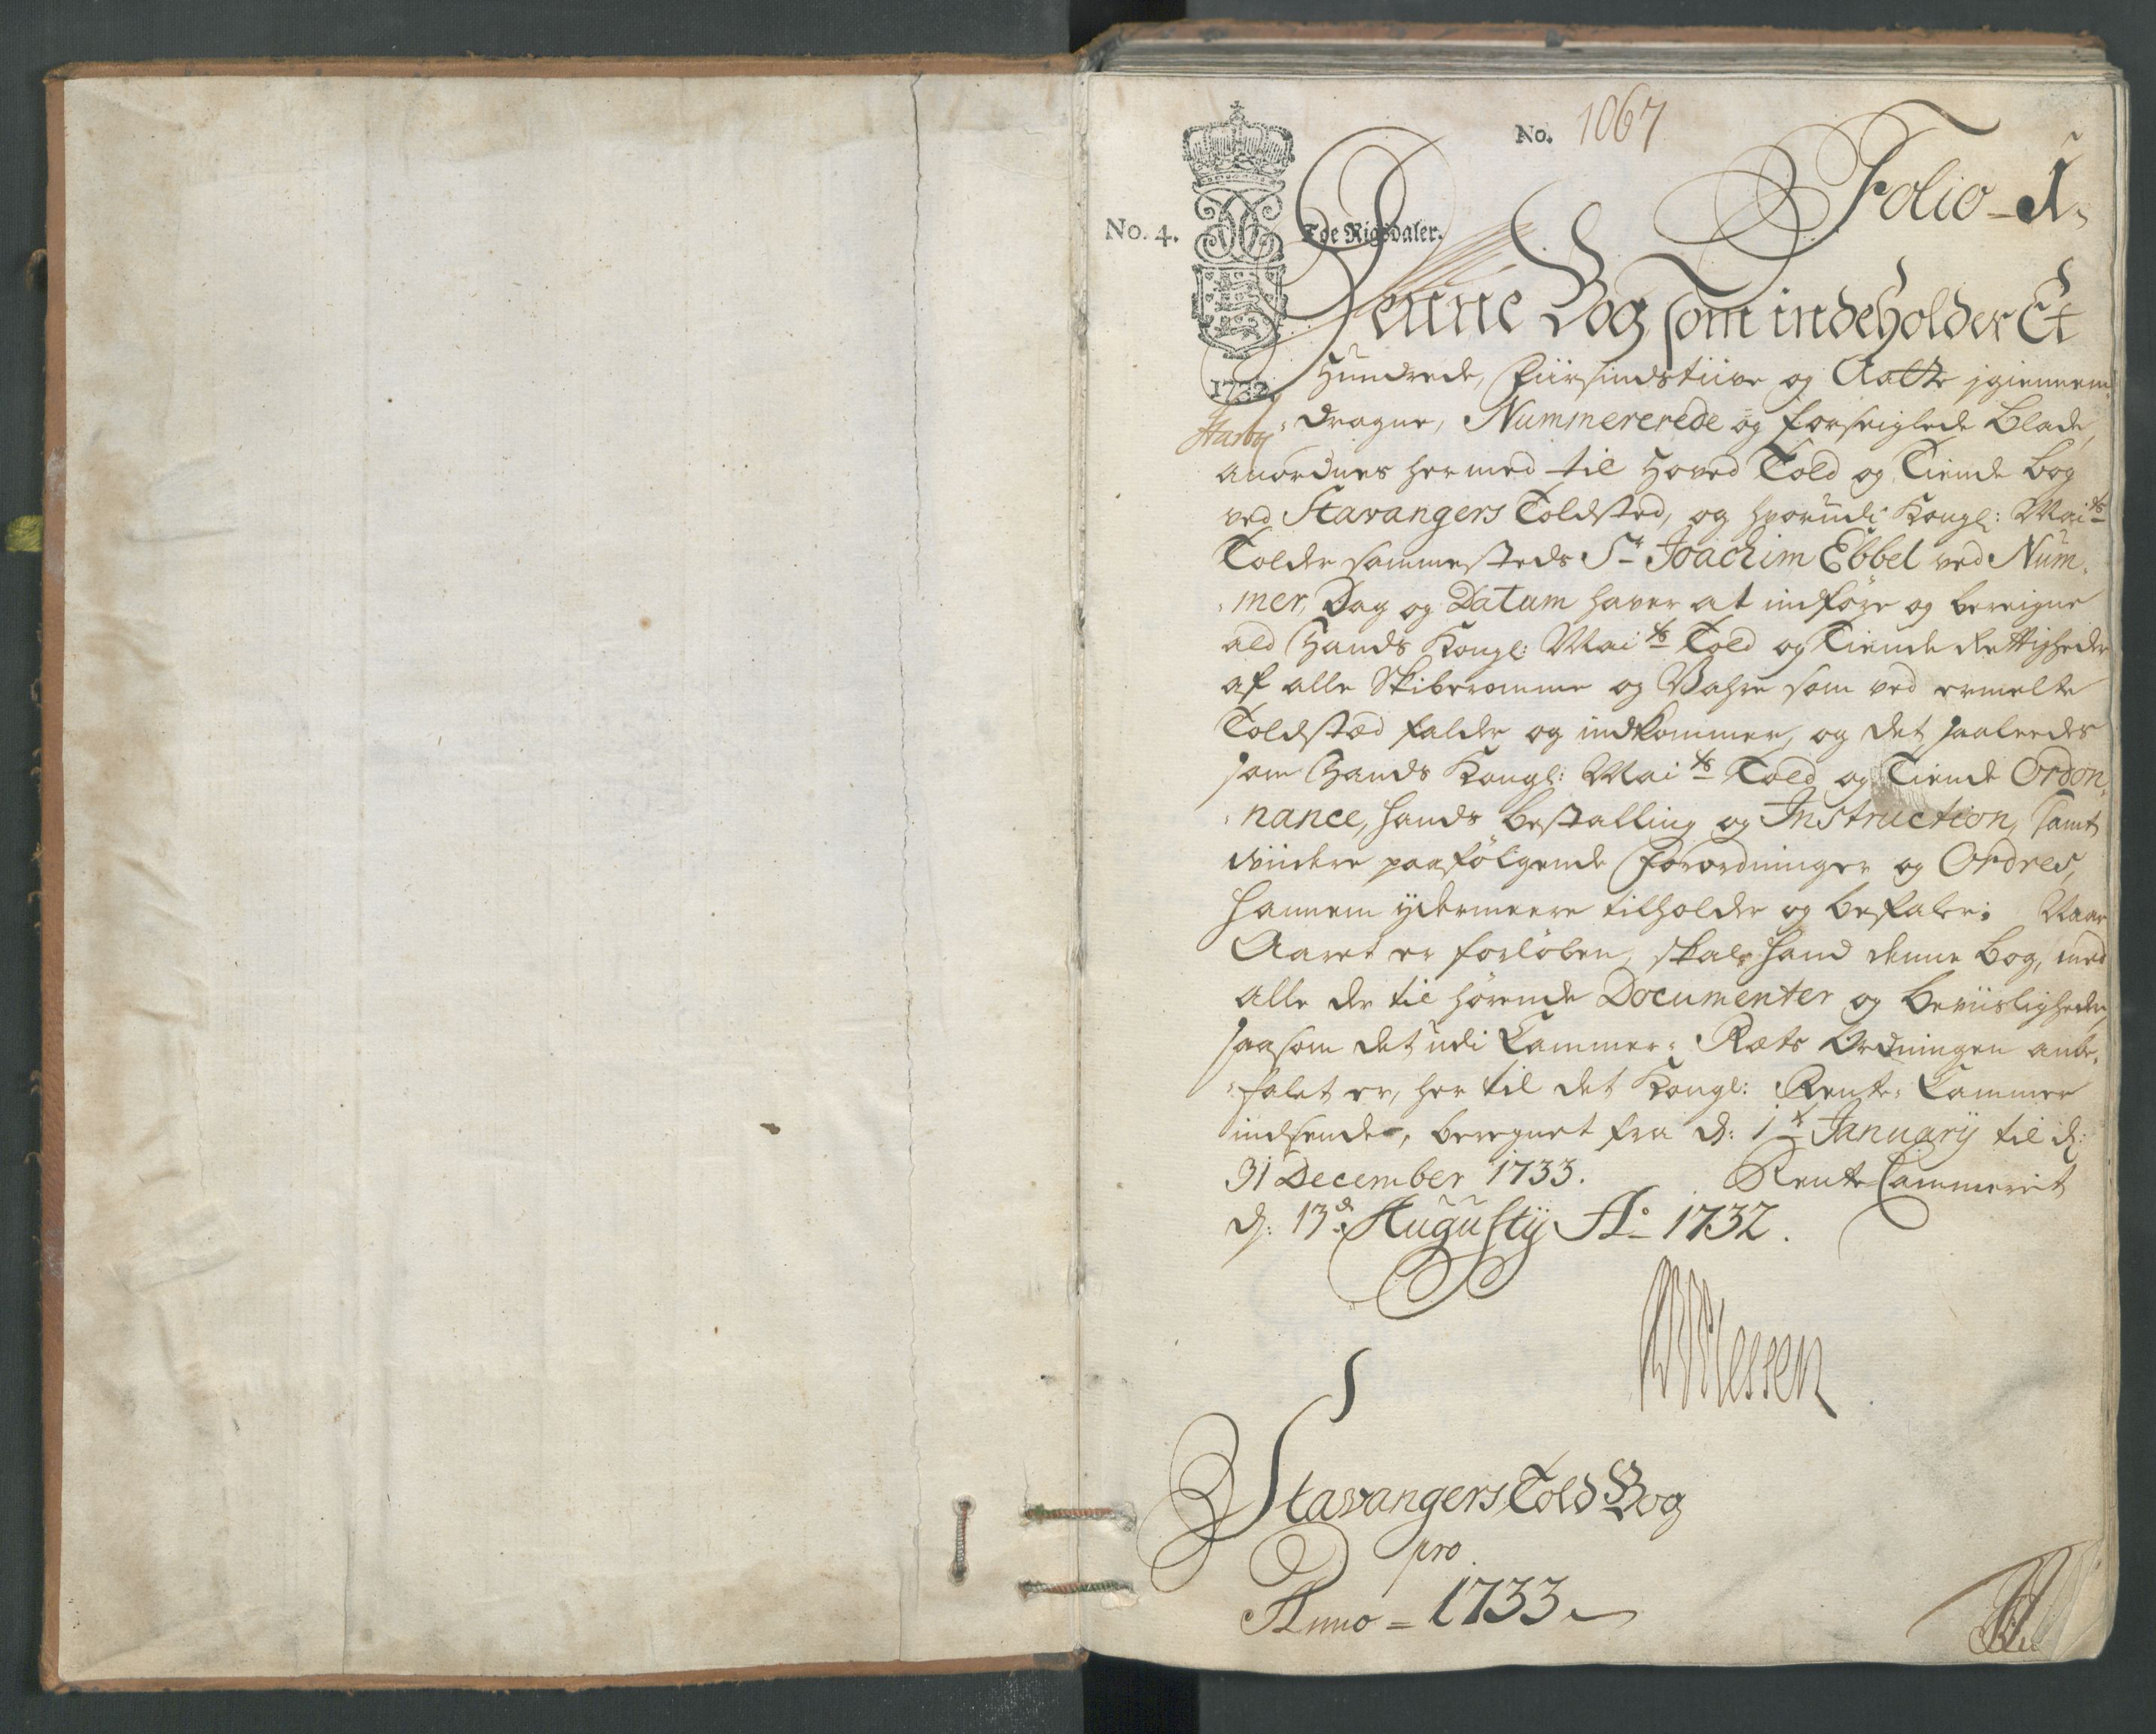 No. 1067
Folio - 1.
No. 4. Tde Rigsdaler.
1732.
Denne Bog som indeholder Et
Hundrede, Fiirsindstiive og Aatte igiennem
dragne, Nummererede og forseiglede blade,
anordnes hermed til Hoved Told og Tiende bog
ved Stavangers Toldsted, og hvorudi Kongl: Mai:ts
Tolder sammesteds Sr Joachim Ebbel ved Num-
mer, Dag og Datum haver at indføre og bereigne
ald Hands Kongl: Mai:ts Told og Tiende Rettigheder
af alle Skiberomme og Vahre som ved ermelte
Toldsted falder og indkommer, og det saaleedes
som Hands Kongl: Mai:ts Told og Tiende Ordon-
nance, hands bestalling og Instruction, samt
viidere paafølgende Forordninger og Ordres,
hannem ydermeere tilholder og befaler; Naar
Aaret er forløben, skal hand denne bog, med
alle der til hørende Documenter og beviisligheder,
saasom det udi Cammer- Rets Ordningen anbe-
falet er, her til det Kongl: Rente- Cammer
indsende, beregnet fra d: 1t January til d:
31 December 1733. Rente Cammeret
d: 13d: Augustij Ao 1732.
Stavangers Told Bog
pro
Anno = 1733